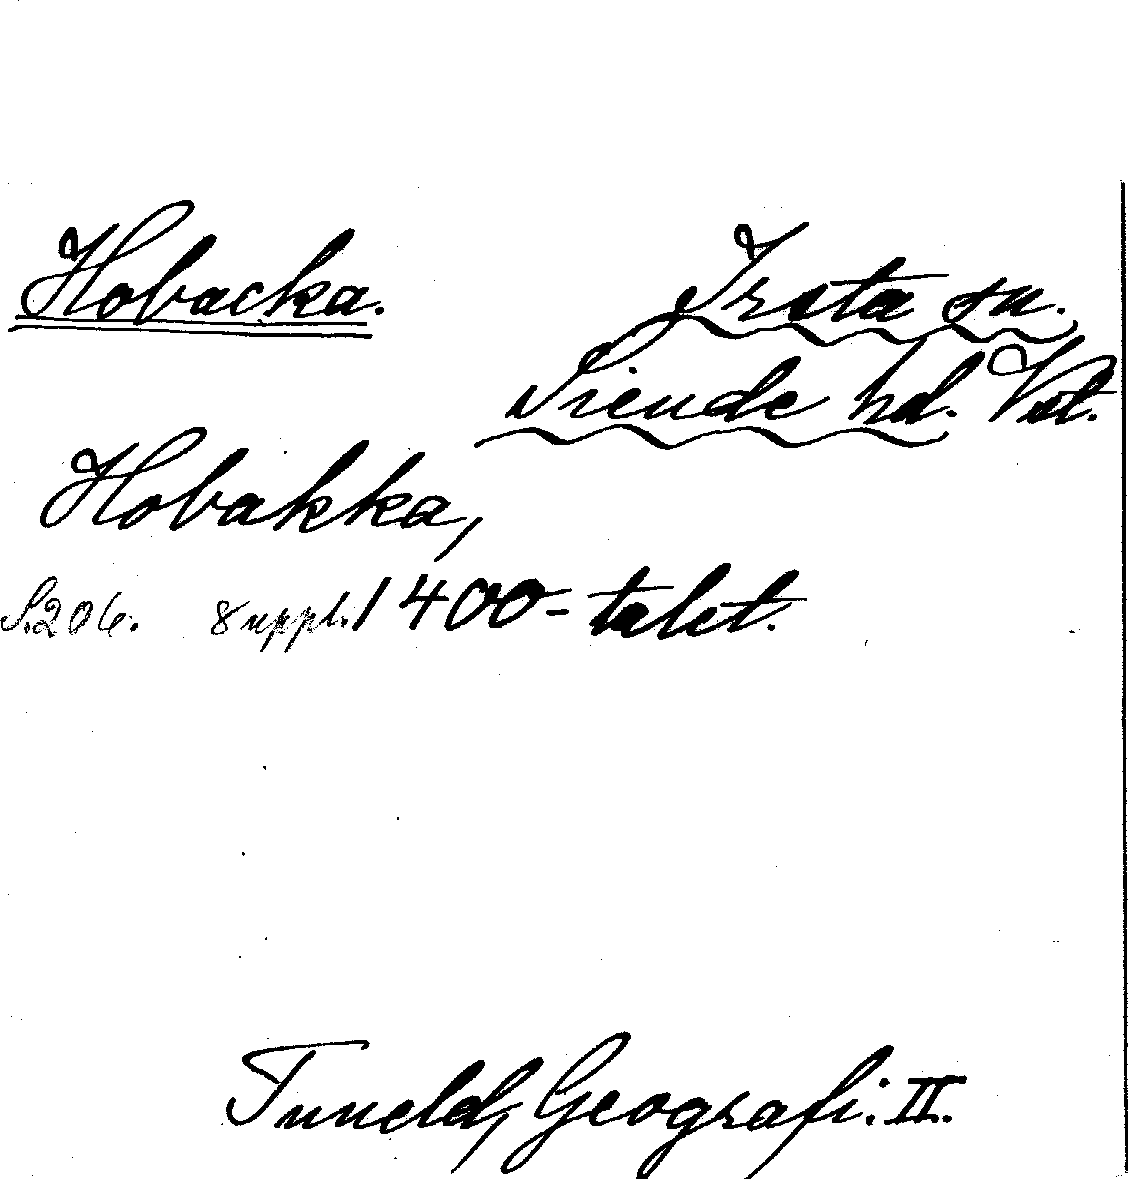 Hobacka.
Irsta sn.
Siende hd. Vstl.
Hobakka,
S.206. 8 uppl. 1400-talet.
Tuneld, Geografi. II.